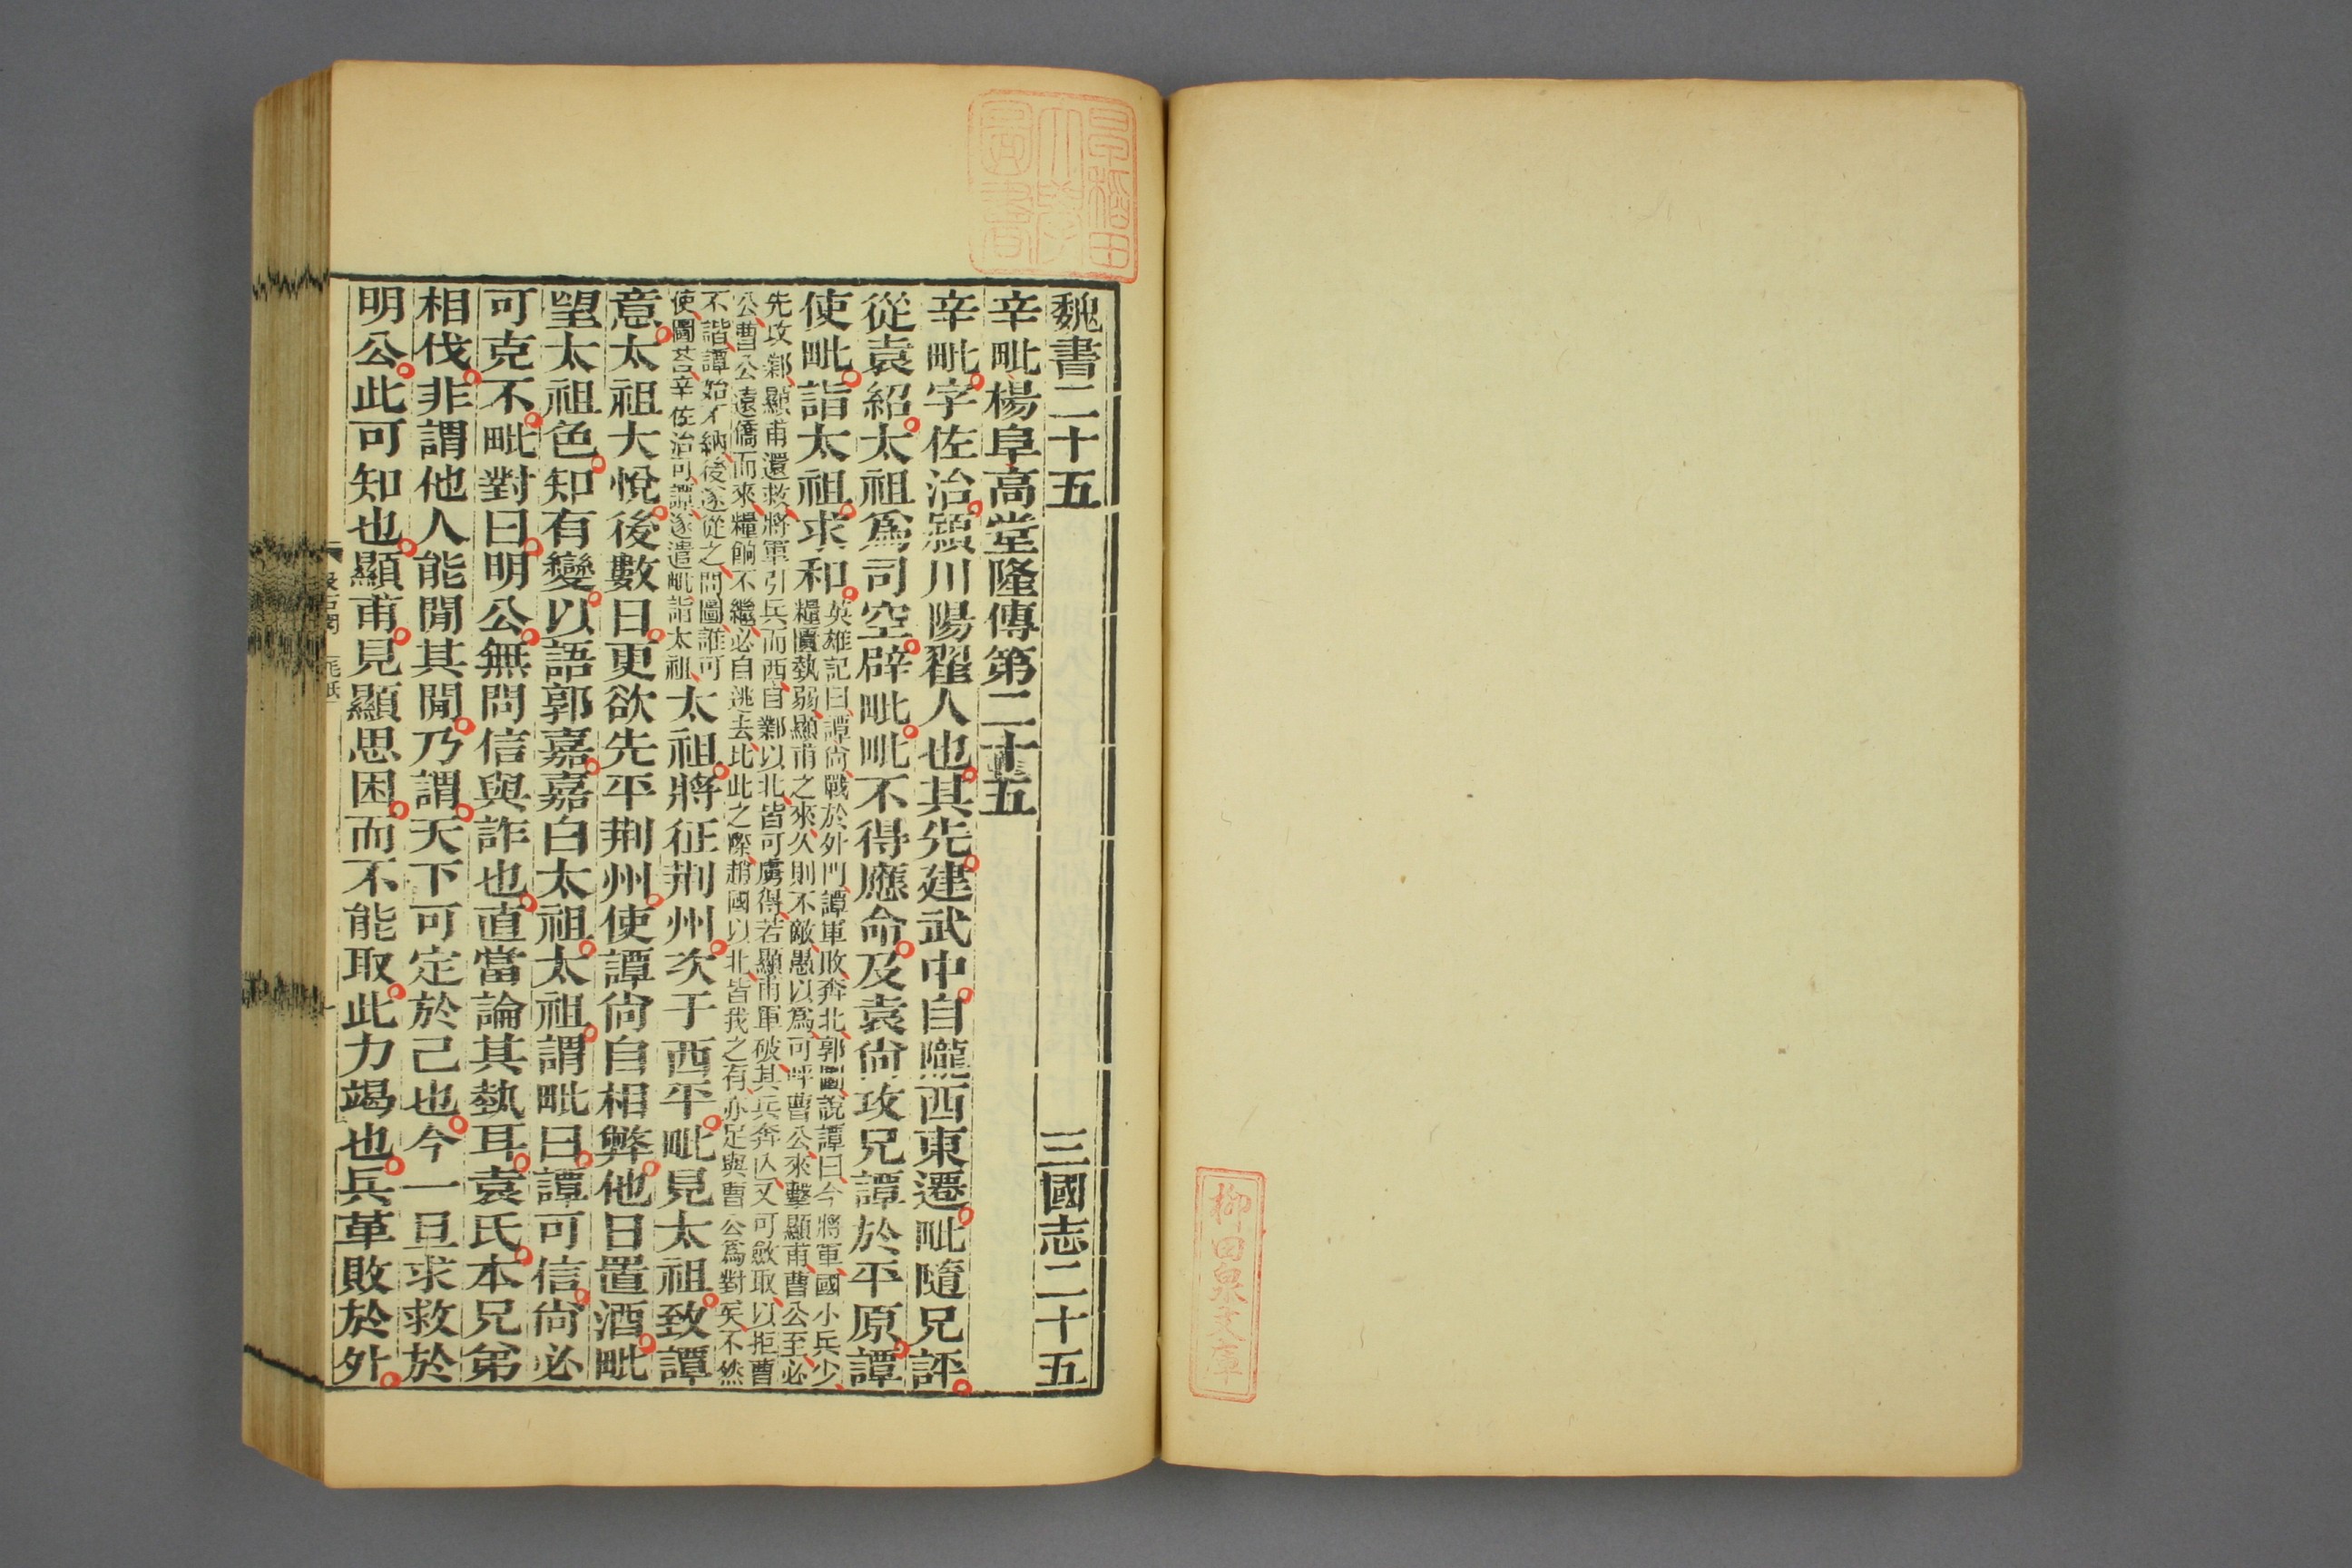 魏書二十五　三國志二十五
辛毗楊阜高堂隆傳第二十五
辛毗字佐治潁川陽翟人也其先建武中自隴西東遷毗隨兄評
從袁紹太祖爲司空辟毗毗不得應命及袁尙攻兄譚於平原譚
使毗詣太祖求和
英雄記曰譚尙戰於外門譚軍敗奔北郭圖說譚曰今將軍國小兵少
糧匱勢弱顯甫之來久則不敵愚以爲可呼曹公來擊顯甫曹公至必
先攻鄴顯甫還救將軍引兵而西自鄴以北皆可虜得若顯甫軍破其兵奔亡又可斂取以拒曹
公曹公遠僑而來糧餉不繼必自逃去比此之際趙國以北皆我之有亦足與曹公爲對矣不然
不諧譚始不納後遂從之問圖誰可
使圖荅辛佐治可譚遂遣毗詣太祖
太祖將征荆州次于西平毗見太祖致譚
意太祖大悅後數日更欲先平荆州使譚尙自相弊他日置酒毗
望太祖色知有變以語郭嘉嘉白太祖太祖謂毗曰譚可信尙必
可克不毗對曰明公無問信與詐也直當論其埶耳袁氏本兄弟
相伐非謂他人能閒其閒乃謂天下可定於己也今一旦求救於
明公此可知也顯甫見顯思困而不能取此力竭也兵革敗於外
早稻田
大學
圖書
柳田泉文庫